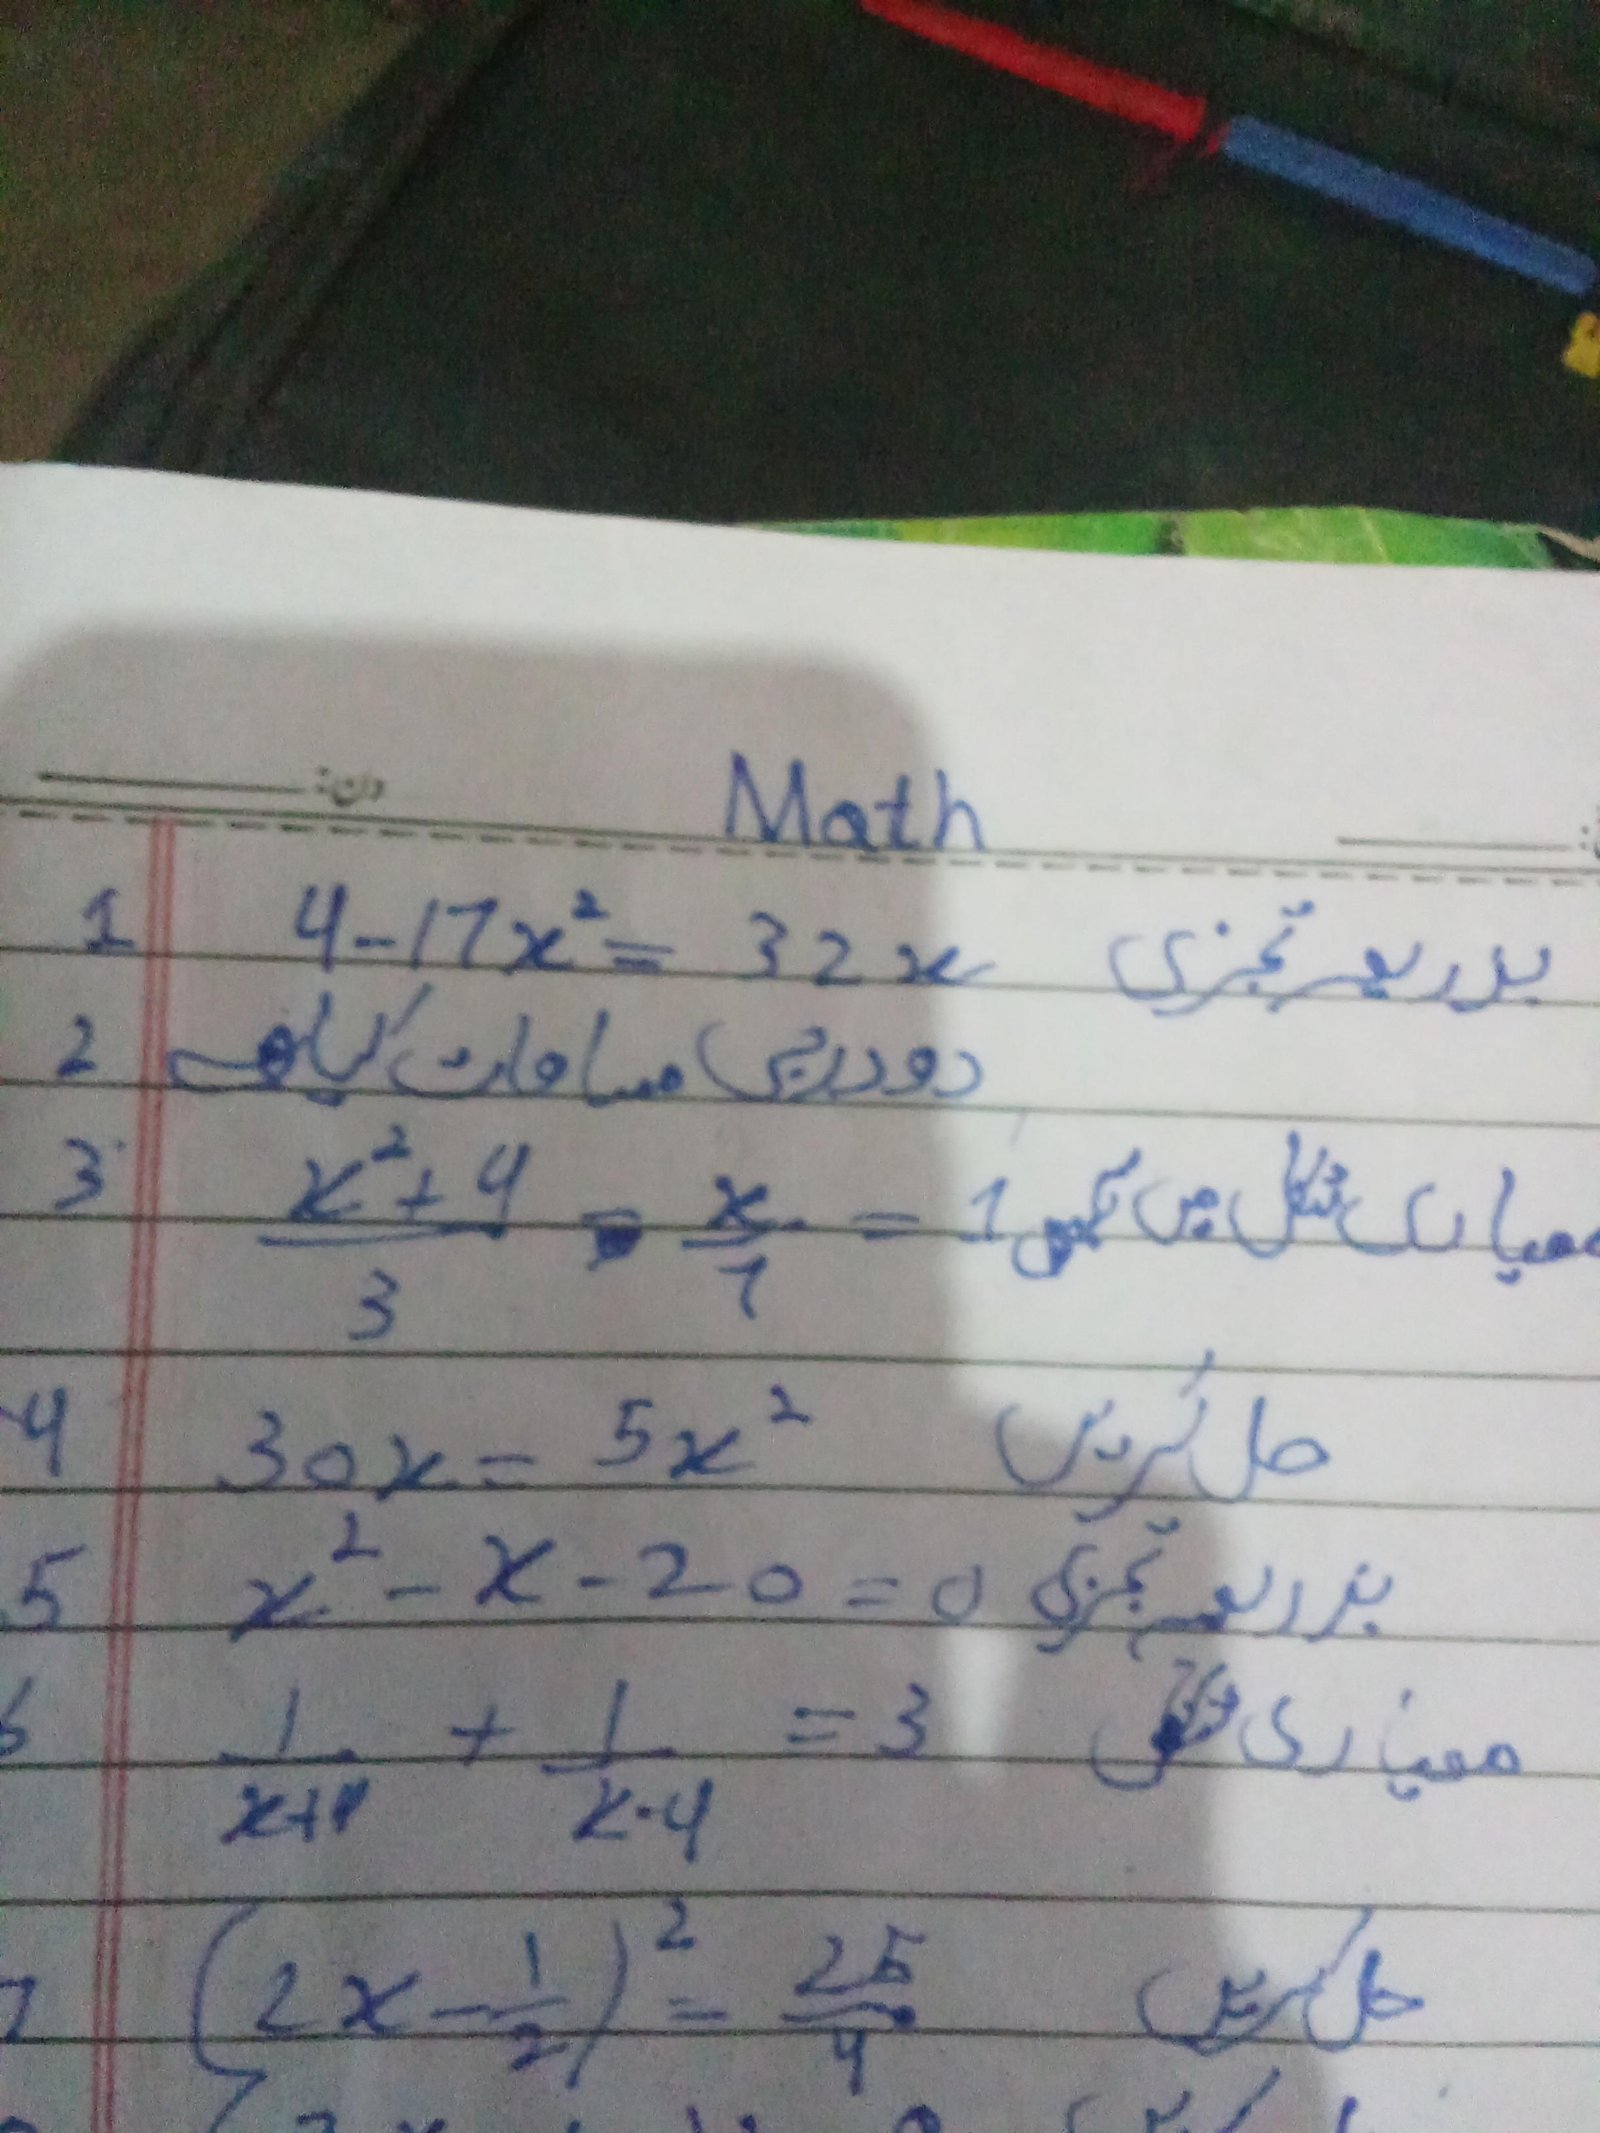 دن:
Math
1 4-17x²= 32x بذریعہ تجزی
2 دو درجی مساوات کیا ہے
3 x²+4/3 - x/7 = 1 معیاری شکل میں لکھیں
4 30x = 5x² حل کریں
5 x² - x - 20 = 0 بذریعہ تجزی
6 1/x+4 + 1/x-4 = 3 معیاری شکل
7 (2x - 1/2)² = 25/4 حل کریں